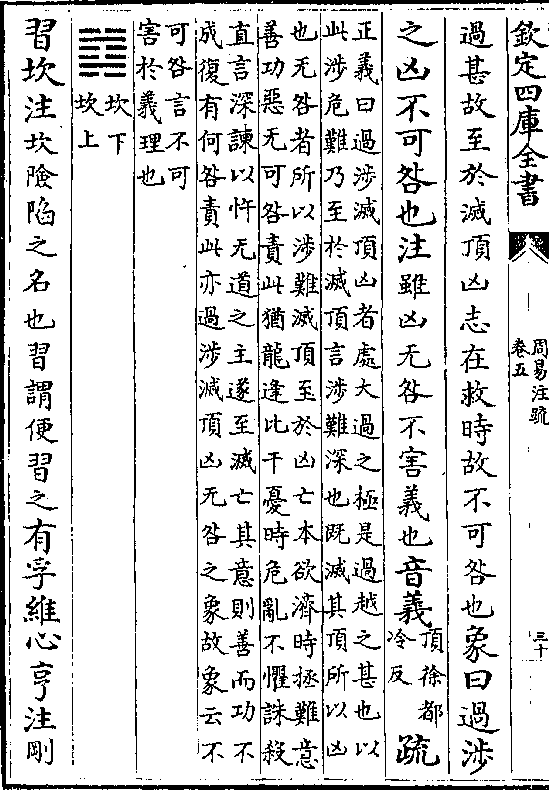 欽定四庫全書
周易注疏
卷五
三十
過甚故至於滅頂凶志在救時故不可咎也象曰過涉
之凶不可咎也注雖凶无咎不害義也音義頂徐都
冷反
疏
正義曰過涉滅頂凶者處大過之極是過越之甚也以
此涉危難乃至於滅頂言涉難深也既滅其頂所以凶
也无咎者所以涉難滅頂至於凶亡本欲濟時拯難意
善功惡无可咎責此猶龍逢比干憂時危亂不懼誅殺
直言深諫以忤无道之主遂至滅亡其意則善而功不
成復有何咎責此亦過涉滅頂凶无咎之象故象云不
可咎言不可
害於義理也
坎下
坎上
習坎注坎險陷之名也習謂便習之有孚維心亨注剛